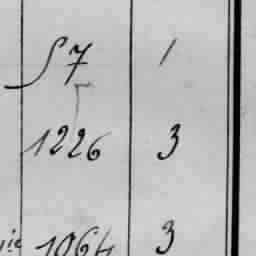 57 1
1226 3
1064 3